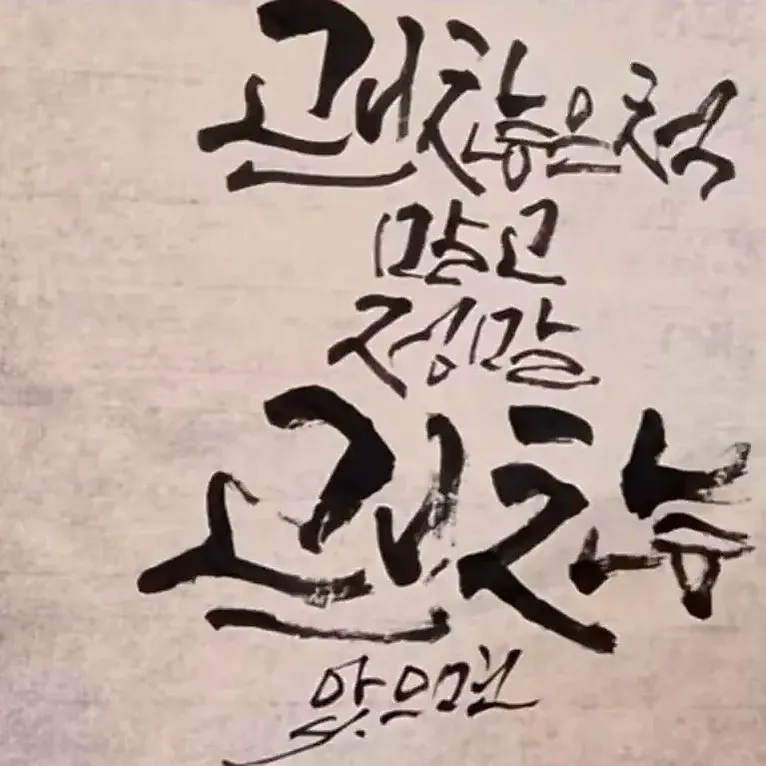 괜찮은척
말고
정말
괜찮
았으면